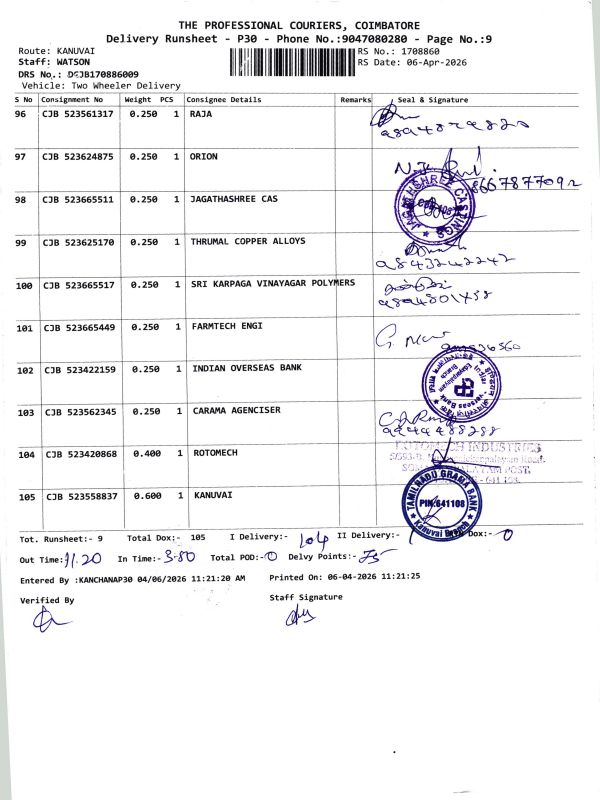 THE PROFESSIONAL COURIERS, COIMBATORE
Delivery Runsheet - P30 - Phone No.:9047080280 - Page No.:9
Route: KANUVAI RS No.: 1708860
Staff: WATSON RS Date: 06-Apr-2026
DRS No.: DCJB170886009
Vehicle: Two Wheeler Delivery
S No Consignment No Weight PCS Consignee Details Remarks Seal & Signature
96 CJB 523561317 0.250 1 RAJA
97 CJB 523624875 0.250 1 ORION
8667877092
98 CJB 523665511 0.250 1 JAGATHSHREE CAS
JAGATHSHREE CASTINGS
99 CJB 523625170 0.250 1 THRUMAL COPPER ALLOYS
9843242242
100 CJB 523665517 0.250 1 SRI KARPAGA VINAYAGAR POLYMERS
101 CJB 523665449 0.250 1 FARMTECH ENGI
102 CJB 523422159 0.250 1 INDIAN OVERSEAS BANK
103 CJB 523562345 0.250 1 CARAMA AGENCISER
9444488288
104 CJB 523420868 0.400 1 ROTOMECH
ROTOMECH INDUSTRIES
105 CJB 523558837 0.600 1 KANUVAI
TAMILNADU GRAMA BANK
PIN:641108
Kanuvai Branch
Tot. Runsheet:- 9 Total Dox:- 105 I Delivery:- 104 II Delivery:- 1 Dox:- 0
Out Time: 11.20 In Time:- 3-80 Total POD:- 0 Delvy Points:- 75
Entered By :KANCHANAP30 04/06/2026 11:21:20 AM Printed On: 06-04-2026 11:21:25
Verified By Staff Signature